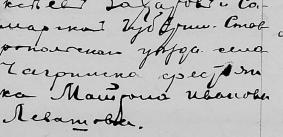 Захаров и Са-
марской Губерніи. Став-
ропольскаго уѣзда села
крестьян-
ка Матрона Иванова
Левашова.